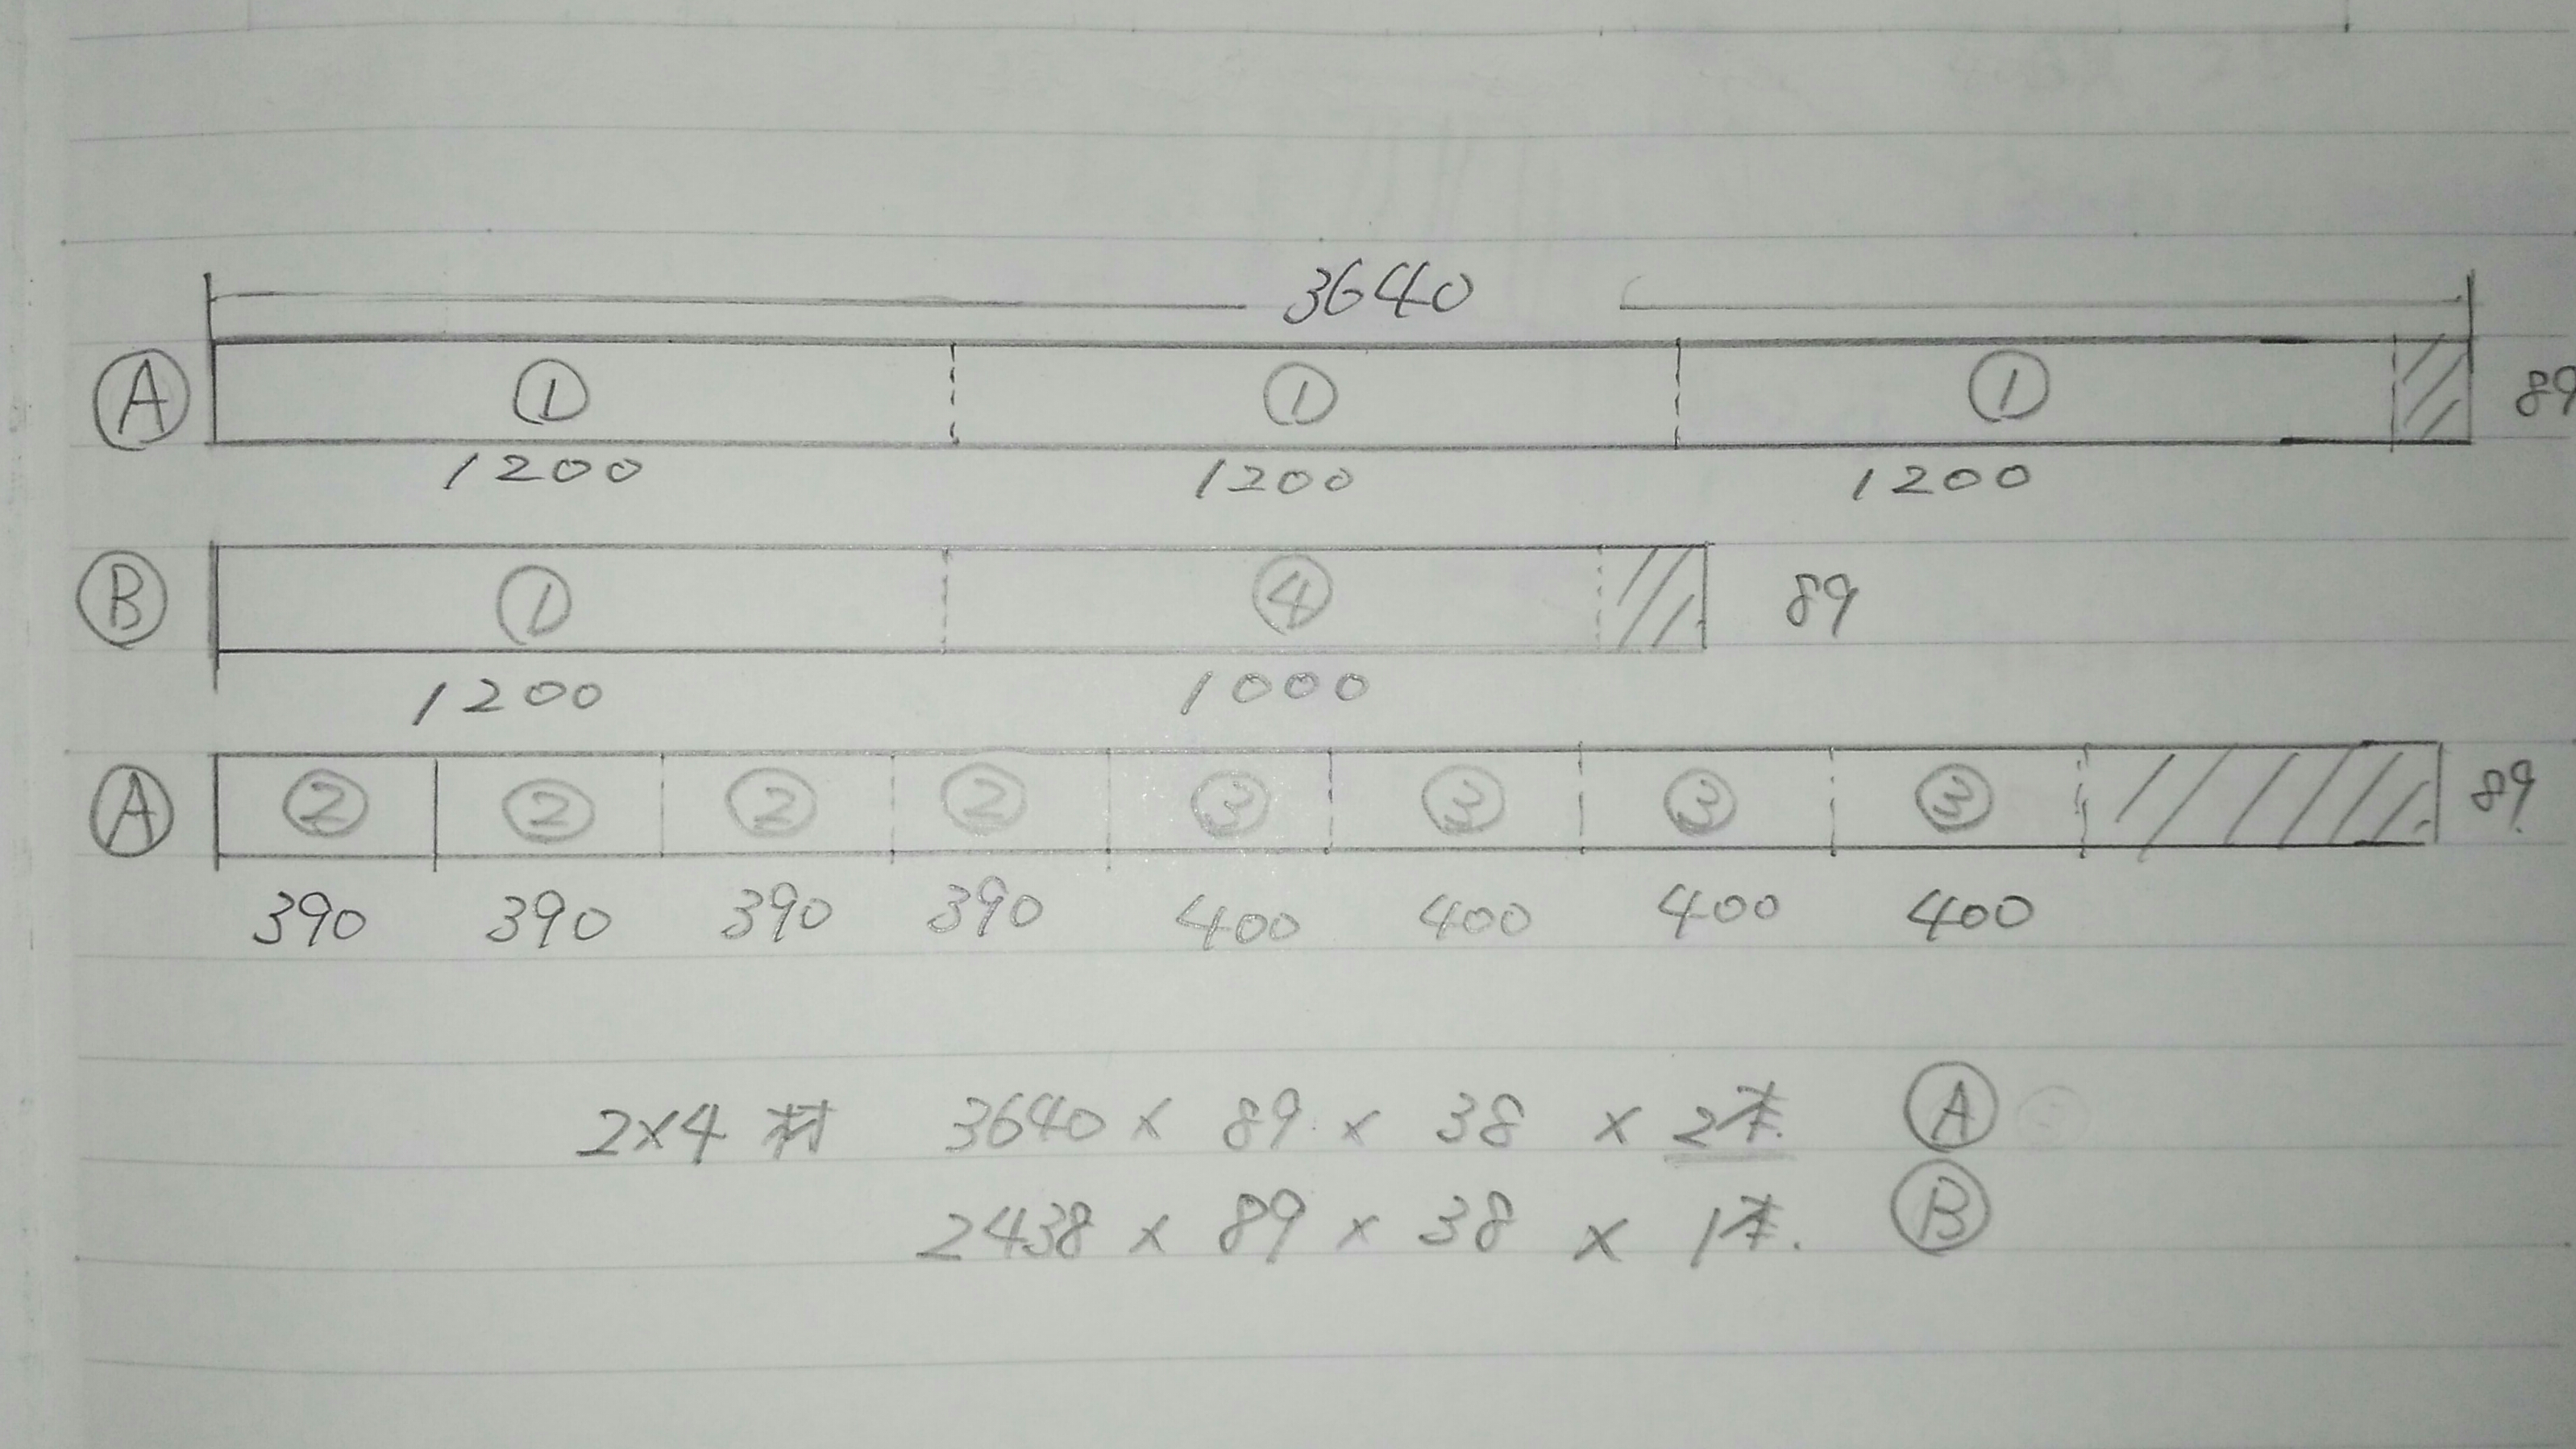 3640
Ⓐ ① ① ① 89
1200 1200 1200
Ⓑ ① ④ 89
1200 1000
Ⓐ ② ② ② ② ③ ③ ③ ③ 89
390 390 390 390 400 400 400 400
2×4 材 3640 × 89 × 38 × 2本. Ⓐ
2438 × 89 × 38 × 1本. Ⓑ